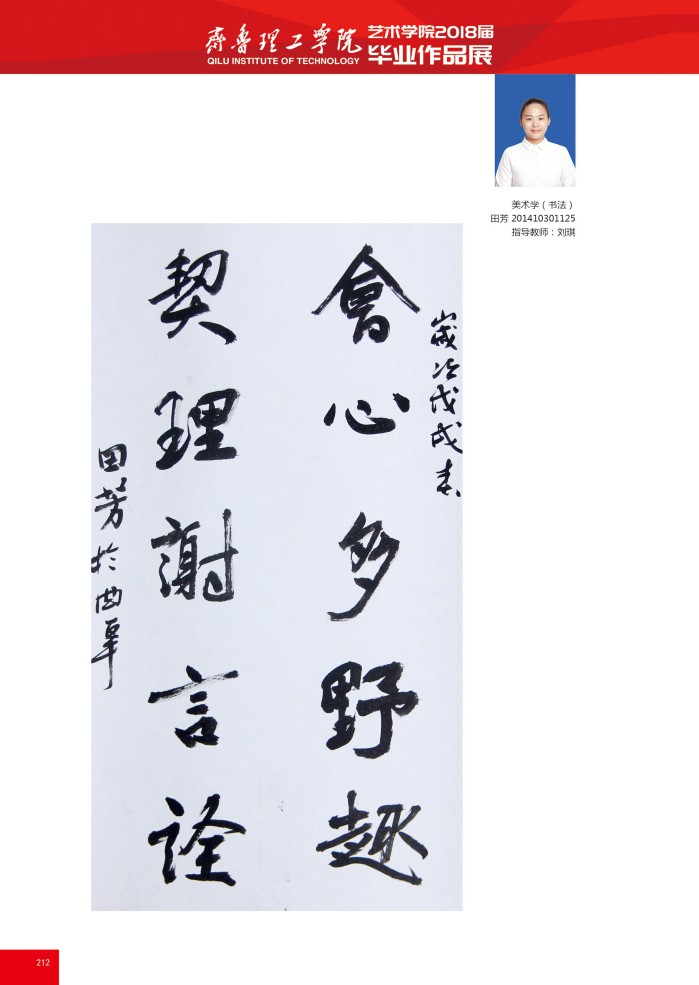 齊魯理工學院
QILU INSTITUTE OF TECHNOLOGY
艺术学院2018届
毕业作品展
美术学（书法）
田芳 201410301125
指导教师：刘琪
歲次戊戌春
會心多野趣
契理謝言詮
田芳於曲阜
212